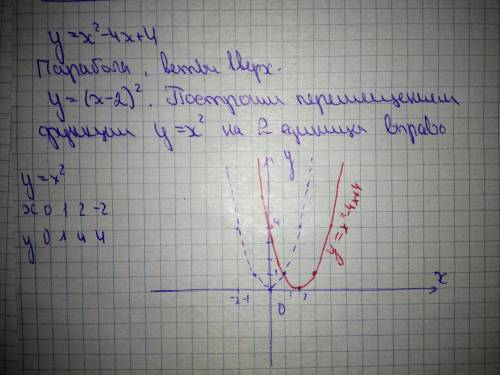 y=x²-4x+4
Парабола, ветви вверх.
y=(x-2)². Построим перемещением
функции y=x² на 2 единицы вправо
y=x²
x 0 1 2 -2
y 0 1 4 4
y
4
1
-2 -1 0 1 2 x
y=x²-4x+4